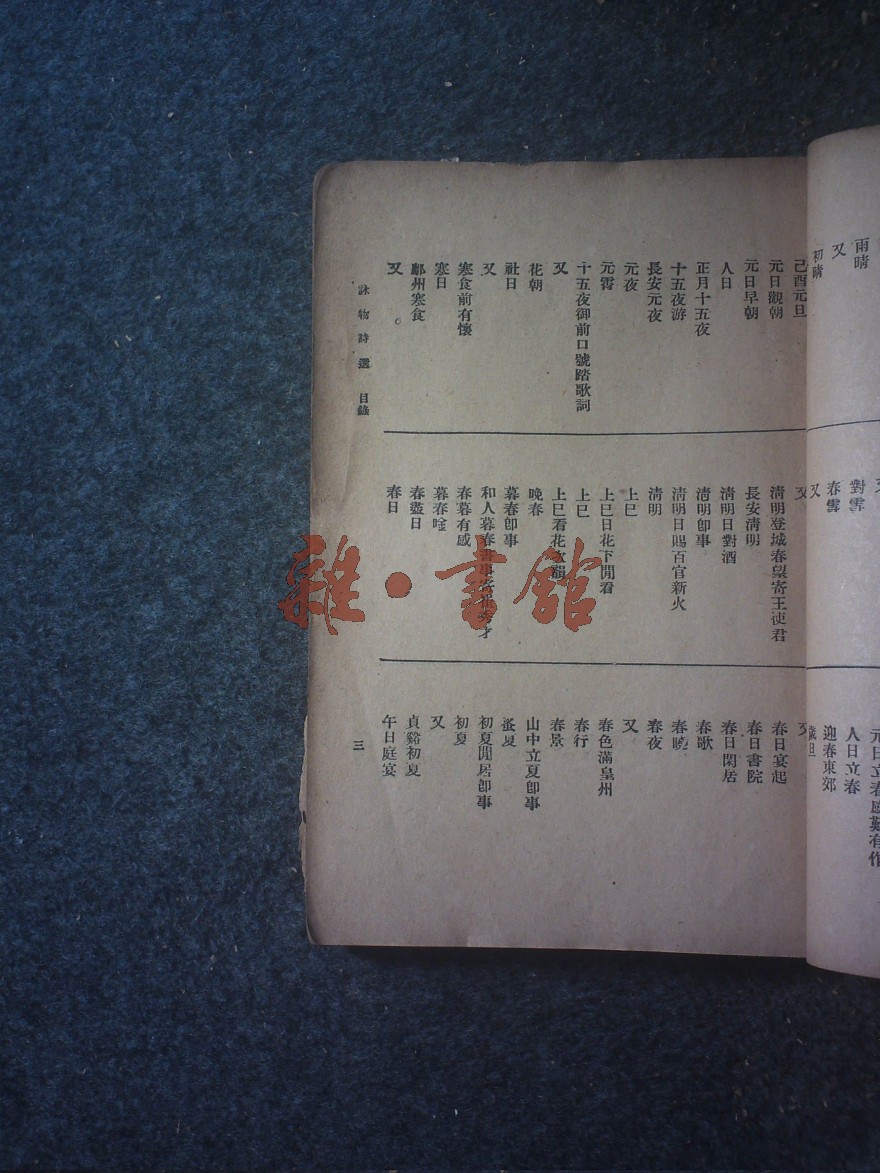 雨晴
又
初晴
對雪
春雪
又
元日立春感歎有作
人日立春
迎春東郊
歲旦
己酉元旦
元日觀朝
元日早朝
人日
正月十五夜
十五夜游
長安元夜
元夜
元霄
又
十五夜御前口號踏歌詞
花朝
社日
又
寒食前有懷
寒日
鄜州寒食
又
又
清明登城春望寄王使君
長安清明
清明日對酒
清明卽事
清明日賜百官新火
清明
上巳
上巳日花下閒看
上巳
上巳看花次韻
晚春
暮春卽事
和人暮春書事寄崔秀才
春暮有感
暮春唫
春盡日
春日
又
春日宴起
春日書院
春日閑居
春歌
春曉
春夜
又
春色滿皇州
春行
春景
山中立夏卽事
孟夏
初夏閒居卽事
初夏
又
貞谿初夏
午日庭宴
詠物詩選 目錄
三
雜·書館